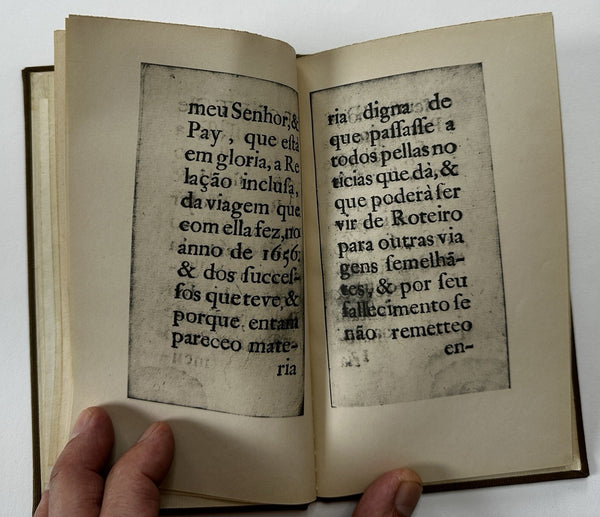 meu Senhor, &
Pay, que està
em gloria, a Re
lação inclusa,
da viagem que
com ella fez, no
anno de 1656.
& dos succes-
sos que teve, &
porque entam
pareceo mate-
ria
ria digna de
que passasse a
todos pellas no
ticias que dà, &
que poderà ser
vir de Roteiro
para outras via
gens semelhã-
tes, & por seu
fallecimento se
não remetteo
en-